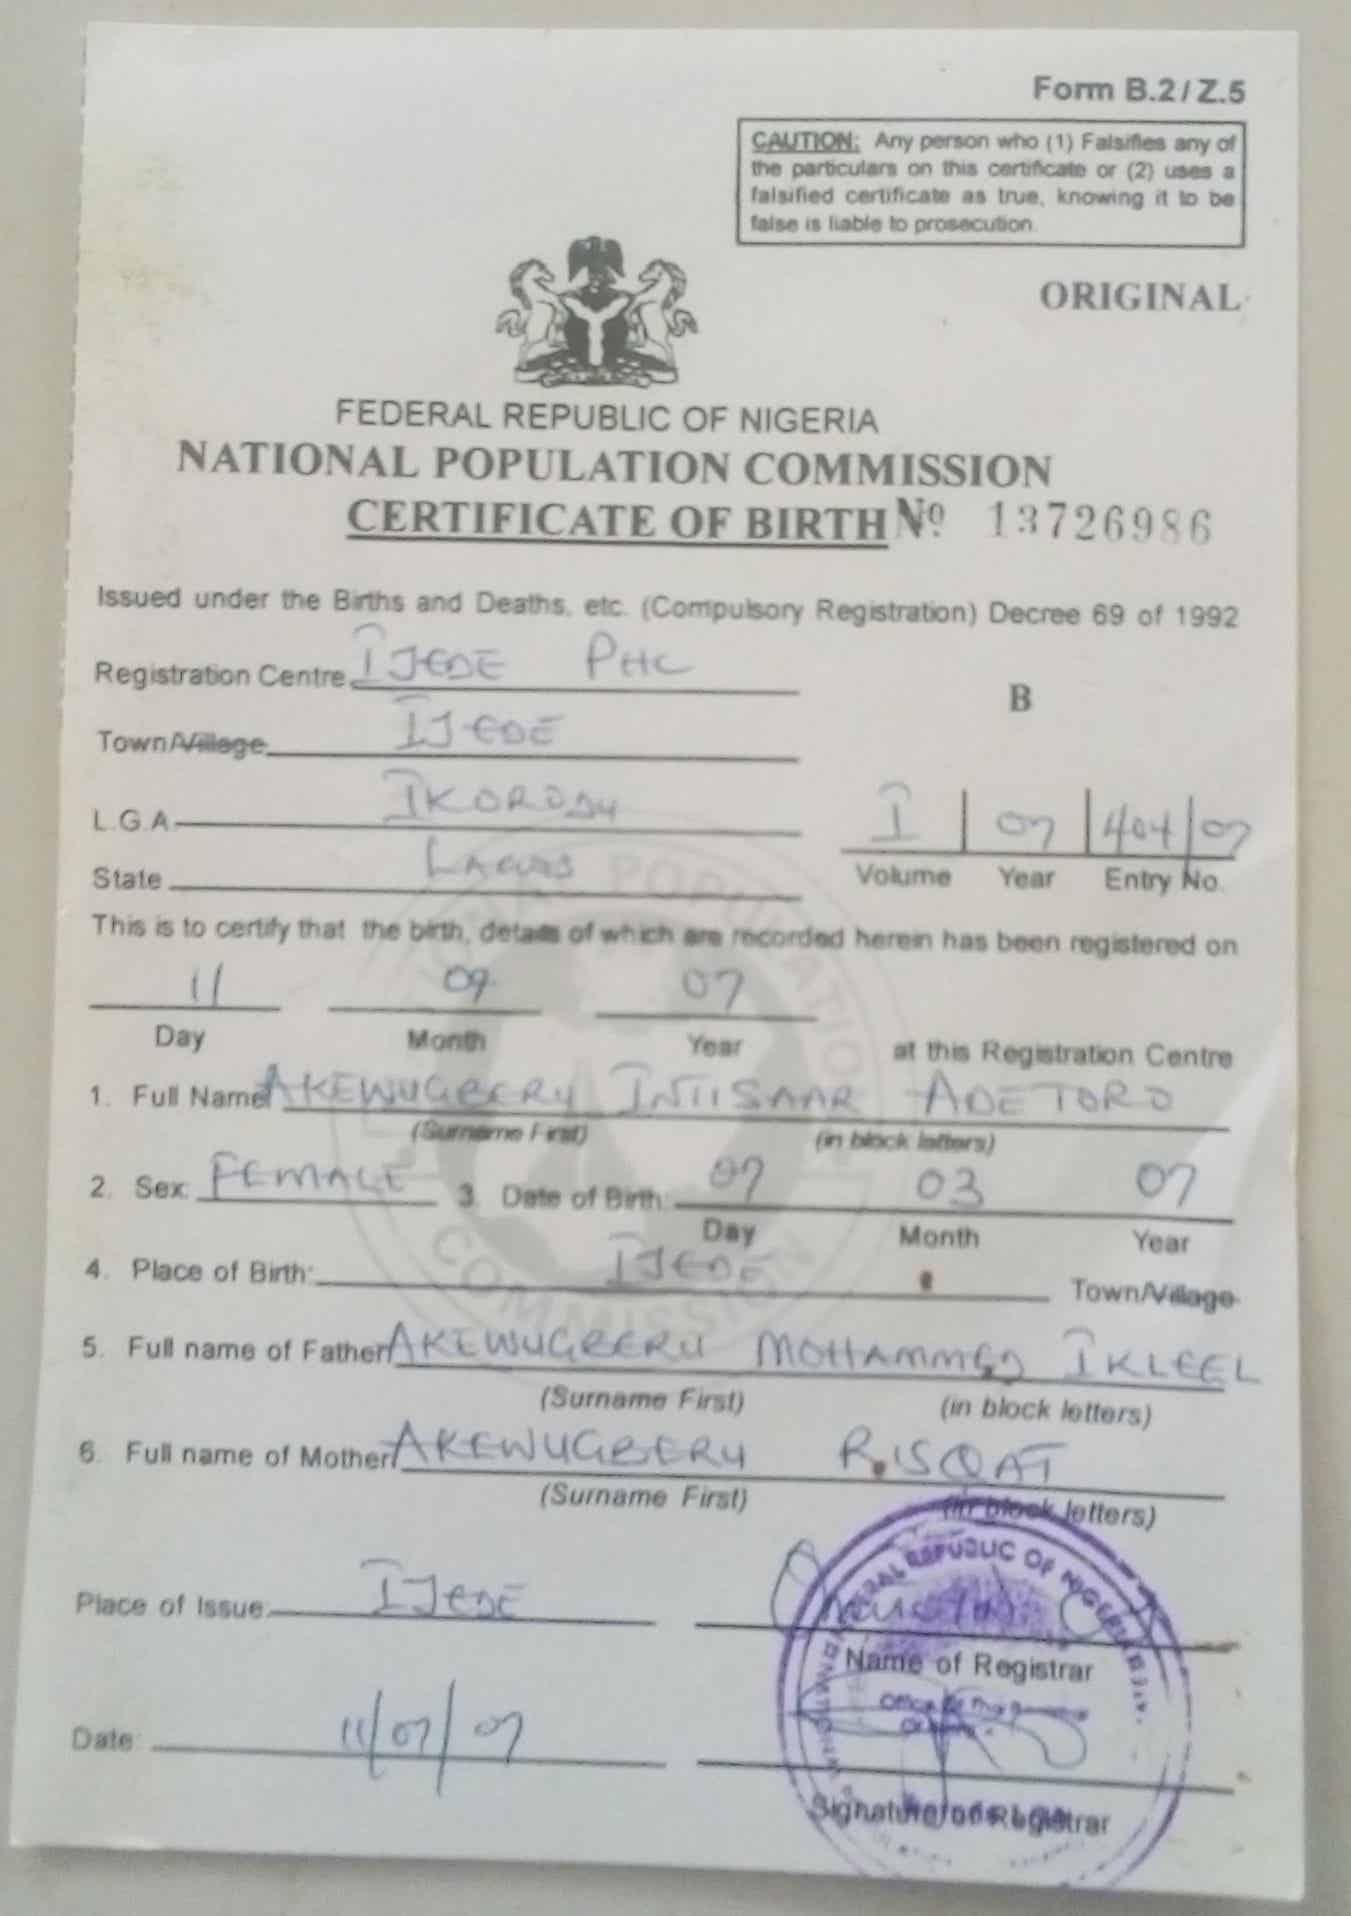 Form B.2/Z.5
CAUTION: Any person who (1) Falsifies any of
the particulars on this certificate or (2) uses a
falsified certificate as true, knowing it to be
false is liable to prosecution.
ORIGINAL
FEDERAL REPUBLIC OF NIGERIA
NATIONAL POPULATION COMMISSION
CERTIFICATE OF BIRTH № 13726986
Issued under the Births and Deaths, etc. (Compulsory Registration) Decree 69 of 1992
Registration Centre IJEDE PHC
B
Town/Village IJEDE
L.G.A IKORODU
I 07 404/07
State LAGOS
Volume Year Entry No.
This is to certify that the birth, details of which are recorded herein has been registered on
11 07
Day Month Year at this Registration Centre
1. Full Name AKEWUGBERU INTISAAR ADETORO
(Surname First) (in block latters)
2. Sex: FEMALE 3. Date of Birth: 07 03 07
Day Month Year
4. Place of Birth: IJEDE Town/Village
5. Full name of Father AKEWUGBERU MOHAMMED IKLEEL
(Surname First) (in block letters)
6. Full name of Mother AKEWUGBERU RISQAT
(Surname First) (in block letters)
Place of Issue: IJEDE
Name of Registrar
Date: 11/07/07
Signature of Registrar
FEDERAL REPUBLIC OF NIGERIA
NATIONAL POPULATION COMMISSION